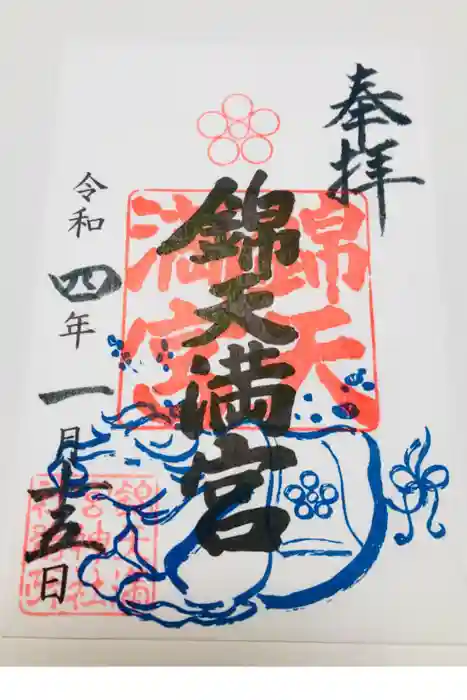 奉拝
錦天満宮
錦天
満宮
令和四年一月十五日